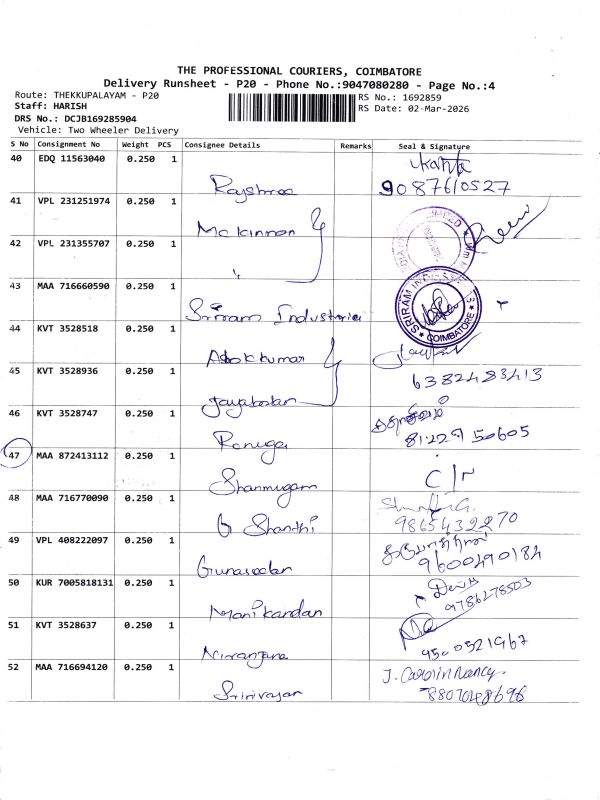 THE PROFESSIONAL COURIERS, COIMBATORE
Delivery Runsheet - P20 - Phone No.:9047080280 - Page No.:4
Route: THEKKUPALAYAM - P20
RS No.: 1692859
Staff: HARISH
RS Date: 02-Mar-2026
DRS No.: DCJB169285904
Vehicle: Two Wheeler Delivery
S No Consignment No Weight PCS Consignee Details Remarks Seal & Signature
40 EDQ 11563040 0.250 1
Rajshree 9087610527
41 VPL 231251974 0.250 1
Mc kinnon
42 VPL 231355707 0.250 1
"
43 MAA 716660590 0.250 1
Sriram Industries SRIRAM INDUSTRIES COIMBATORE
44 KVT 3528518 0.250 1
Ashok kumar
45 KVT 3528936 0.250 1
6382483413
Jayabalan
46 KVT 3528747 0.250 1
Renuga 8122950605
47 MAA 872413112 0.250 1
Shanmugam
48 MAA 716770090 0.250 1
G Shanthi 9865432270
49 VPL 408222097 0.250 1
Gunaseelan 9600490184
50 KUR 7005818131 0.250 1
Manikandan 9786278503
51 KVT 3528637 0.250 1
Niranjana 9500521967
52 MAA 716694120 0.250 1
J. Carolin Nancy
Srinivasan 8807048696